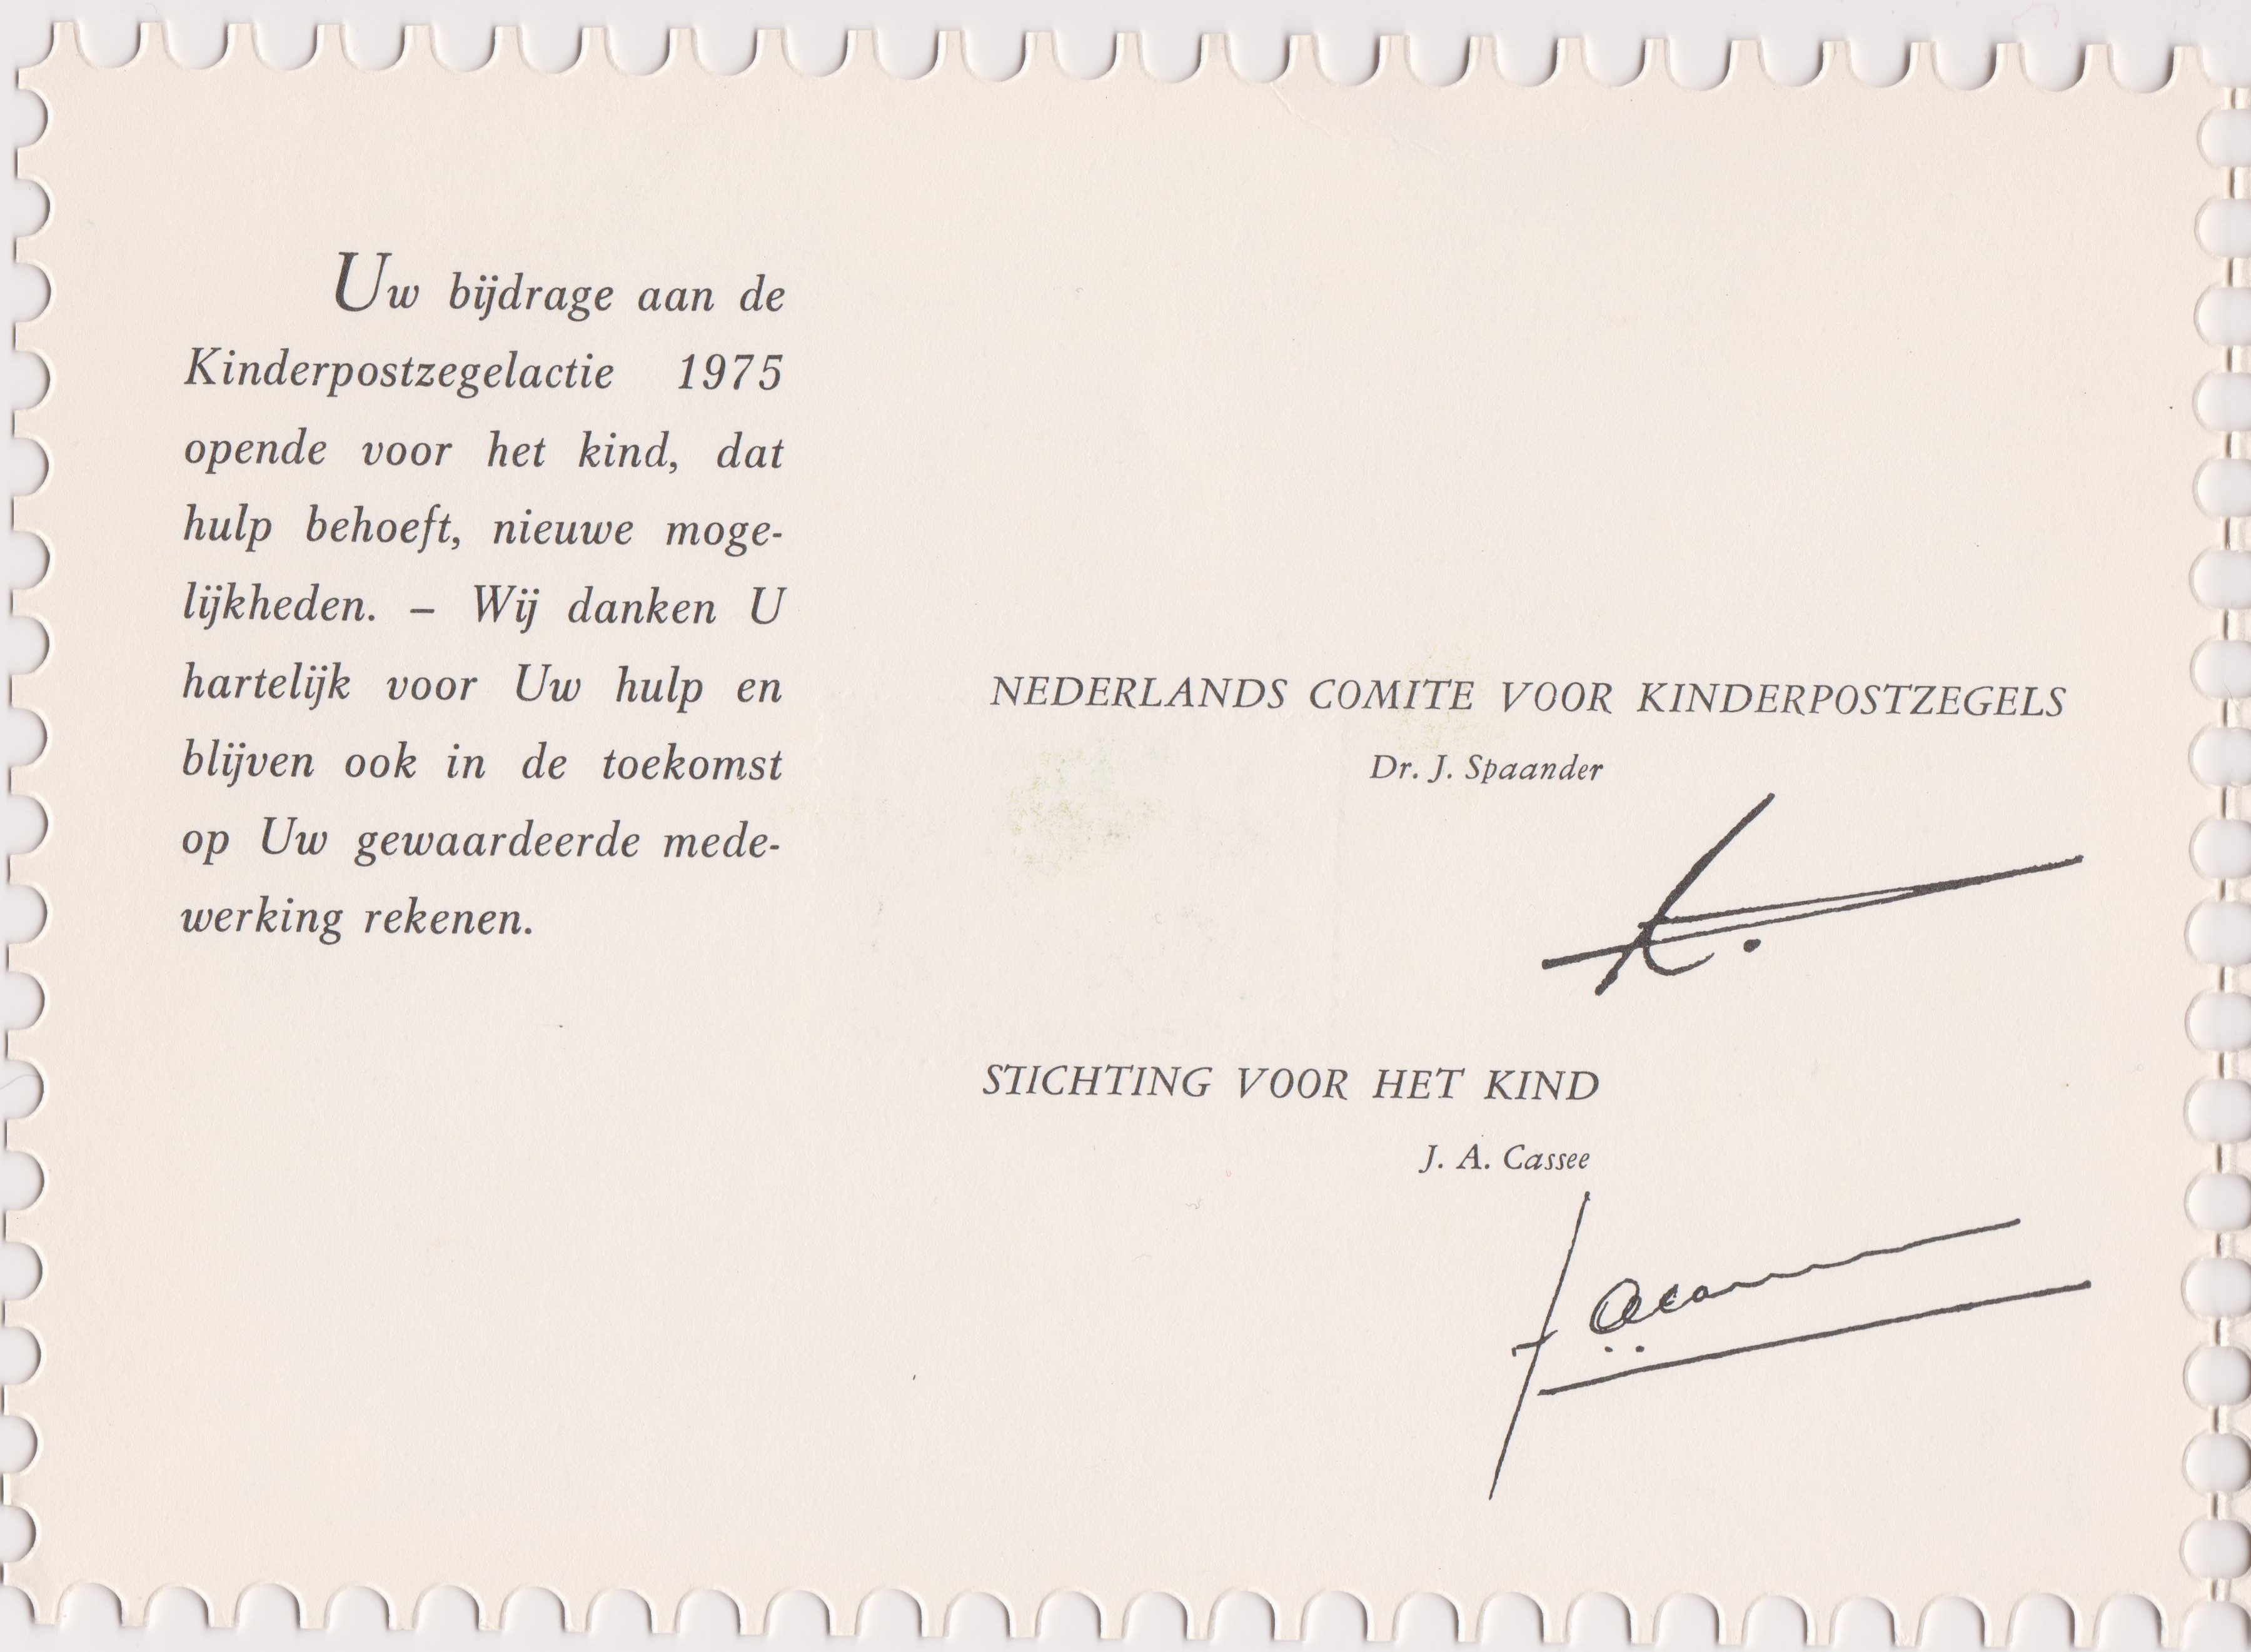 Uw bijdrage aan de
Kinderpostzegelactie 1975
opende voor het kind, dat
hulp behoeft, nieuwe moge-
lijkheden. – Wij danken U
hartelijk voor Uw hulp en
blijven ook in de toekomst
op Uw gewaardeerde mede-
werking rekenen.
NEDERLANDS COMITE VOOR KINDERPOSTZEGELS
Dr. J. Spaander
STICHTING VOOR HET KIND
J. A. Cassee